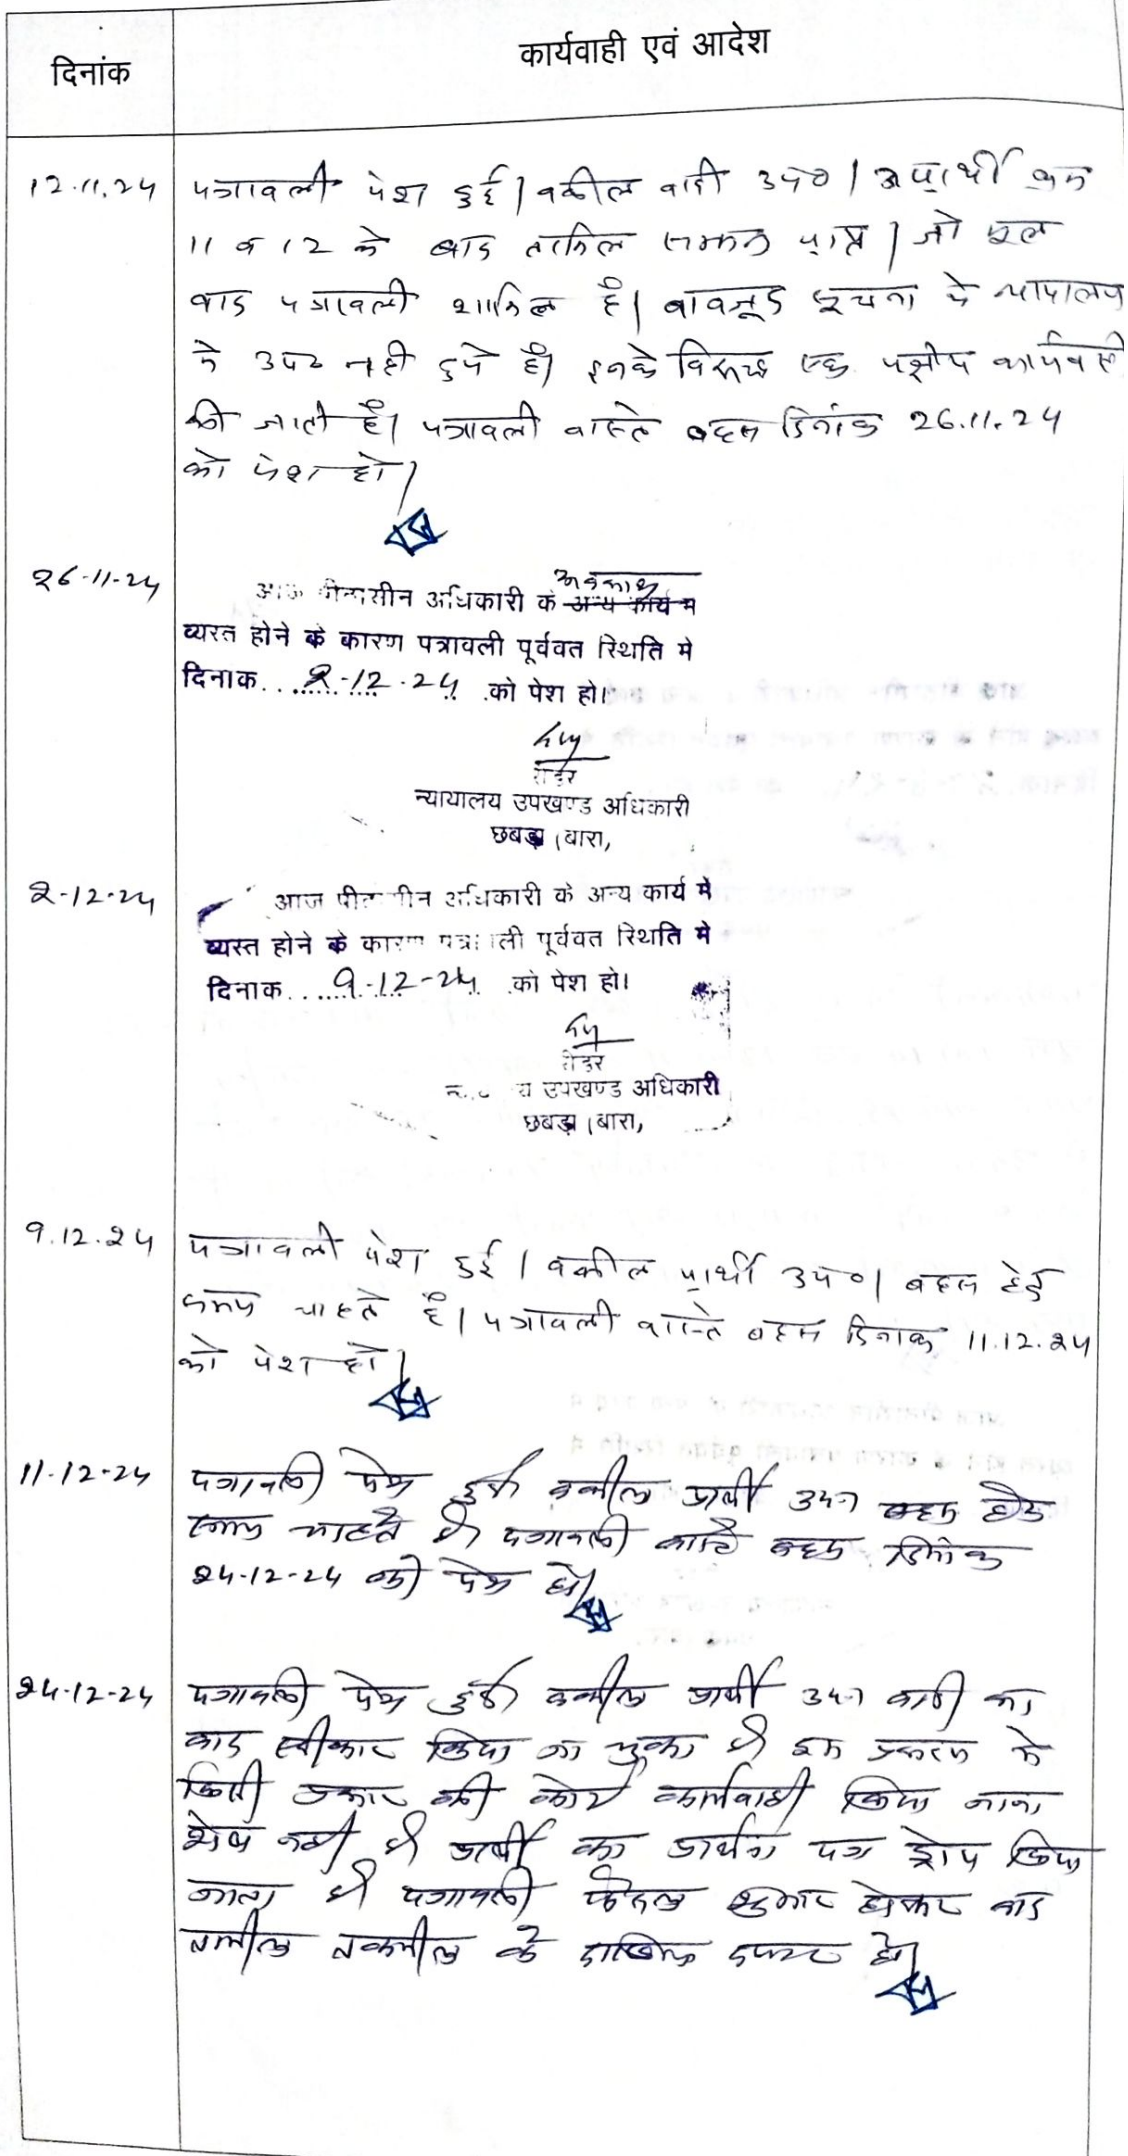 दिनांक
कार्यवाही एवं आदेश
12.11.24
पत्रावली पेश हुई। वकील वादी उप०। अप्रार्थी क्रम
11 व 12 के बाद तामिल सम्मन प्राप्त। जो मूल
वाद पत्रावली शामिल है। बावजूद सूचना के न्यायालय
मे उप० नही हुये है। इनके विरूद्ध एक पक्षीय कार्यवाही
की जाती है। पत्रावली वास्ते बहस दिनांक 26.11.24
को पेश हो।
26-11-24
अवकाश
आज पीठासीन अधिकारी के अन्य कार्य मे
व्यस्त होने के कारण पत्रावली पूर्ववत स्थिति मे
दिनाक....2-12-24...को पेश हो।
रीडर
न्यायालय उपखण्ड अधिकारी
छबड़ा (बारा,
2-12-24
आज पीठासीन अधिकारी के अन्य कार्य मे
व्यस्त होने के कारण पत्रावली पूर्ववत स्थिति मे
दिनाक....9-12-24...को पेश हो।
रीडर
न्यायालय उपखण्ड अधिकारी
छबड़ा (बारा,
9.12.24
पत्रावली पेश हुई। वकील प्रार्थी उप०। बहस हेतु
समय चाहते है। पत्रावली वास्ते बहस दिनांक 11.12.24
को पेश हो।
11-12-24
पत्रावली पेश हुई वकील प्रार्थी उप० बहस हेतु
समय चाहते है। पत्रावली वास्ते बहस दिनांक
24-12-24 को पेश हो।
24-12-24
पत्रावली पेश हुई वकील प्रार्थी उप० वादी का
वाद स्वीकार किया जा चुका है इस प्रकरण मे
किसी प्रकार की कोई कार्यवाही किया जाना
शेष नही है प्रार्थी का प्रार्थना पत्र ड्रोप किया
जाता है पत्रावली फैसल शुमार होकर बाद
तामील तकमील के दाखिल दफ्तर हो।